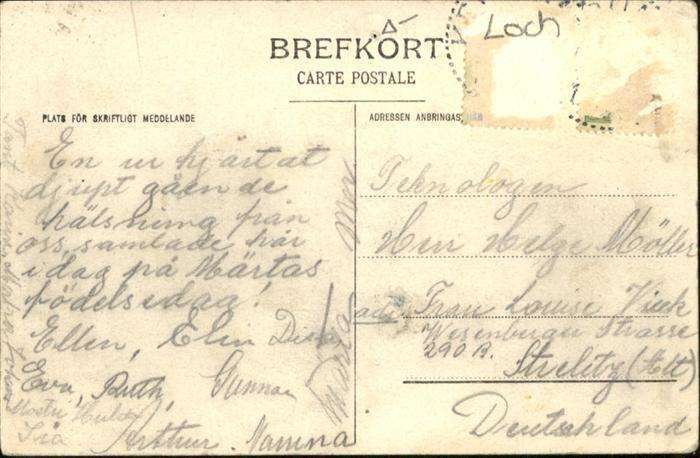 BREFKORT
CARTE POSTALE
Loch
PLATS FÖR SKRIFTLIGT MEDDELANDE
En ur hjärtat
djupt gåen de
hälsning från
oss samlade här
i dag på Märtas
födelsedag!
Ellen, Elin
Eva, Ruth, Gunnar
Moster
Arthur. Mamma
Märta
ADRESSEN ANBRINGAS
Teknologen
Herr Helge Möller
adr. Frau Louise
Wesenberger Strasse
290 B.
Strelitz (Alt)
Deutschland